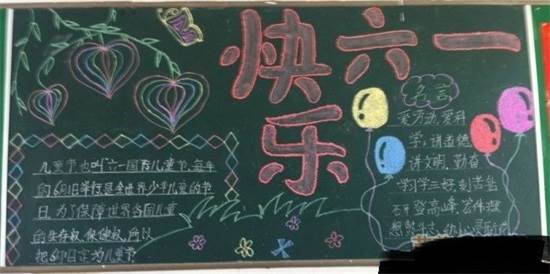 六一
快乐
儿童节也叫六一国际儿童节,每年
的6月1日举行是全世界少年儿童的节
日。为了保障世界各国儿童
的生存权、保健权,所以
把6月1日定为儿童节
名言
爱劳动,爱科
学,讲道德
讲文明,勤奋
学习学三好,刻苦钻
研登高峰,宏伟理
想 斗志,幼小心灵